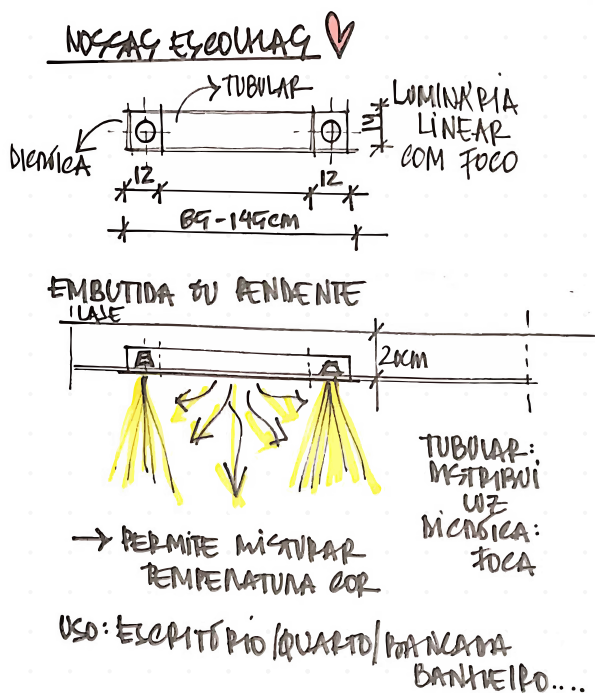 NOSSAS ESCOLHAS
TUBULAR
DICRÓICA
12
12
LUMINÁRIA
LINEAR
COM FOCO
85-145cm
EMBUTIDA OU PENDENTE
LAJE
20cm
TUBULAR:
DISTRIBUI
LUZ
DICRÓICA:
FOCA
→ PERMITE MISTURAR
TEMPERATURA COR
USO: ESCRITÓRIO/QUARTO/BANCADA
BANHEIRO....